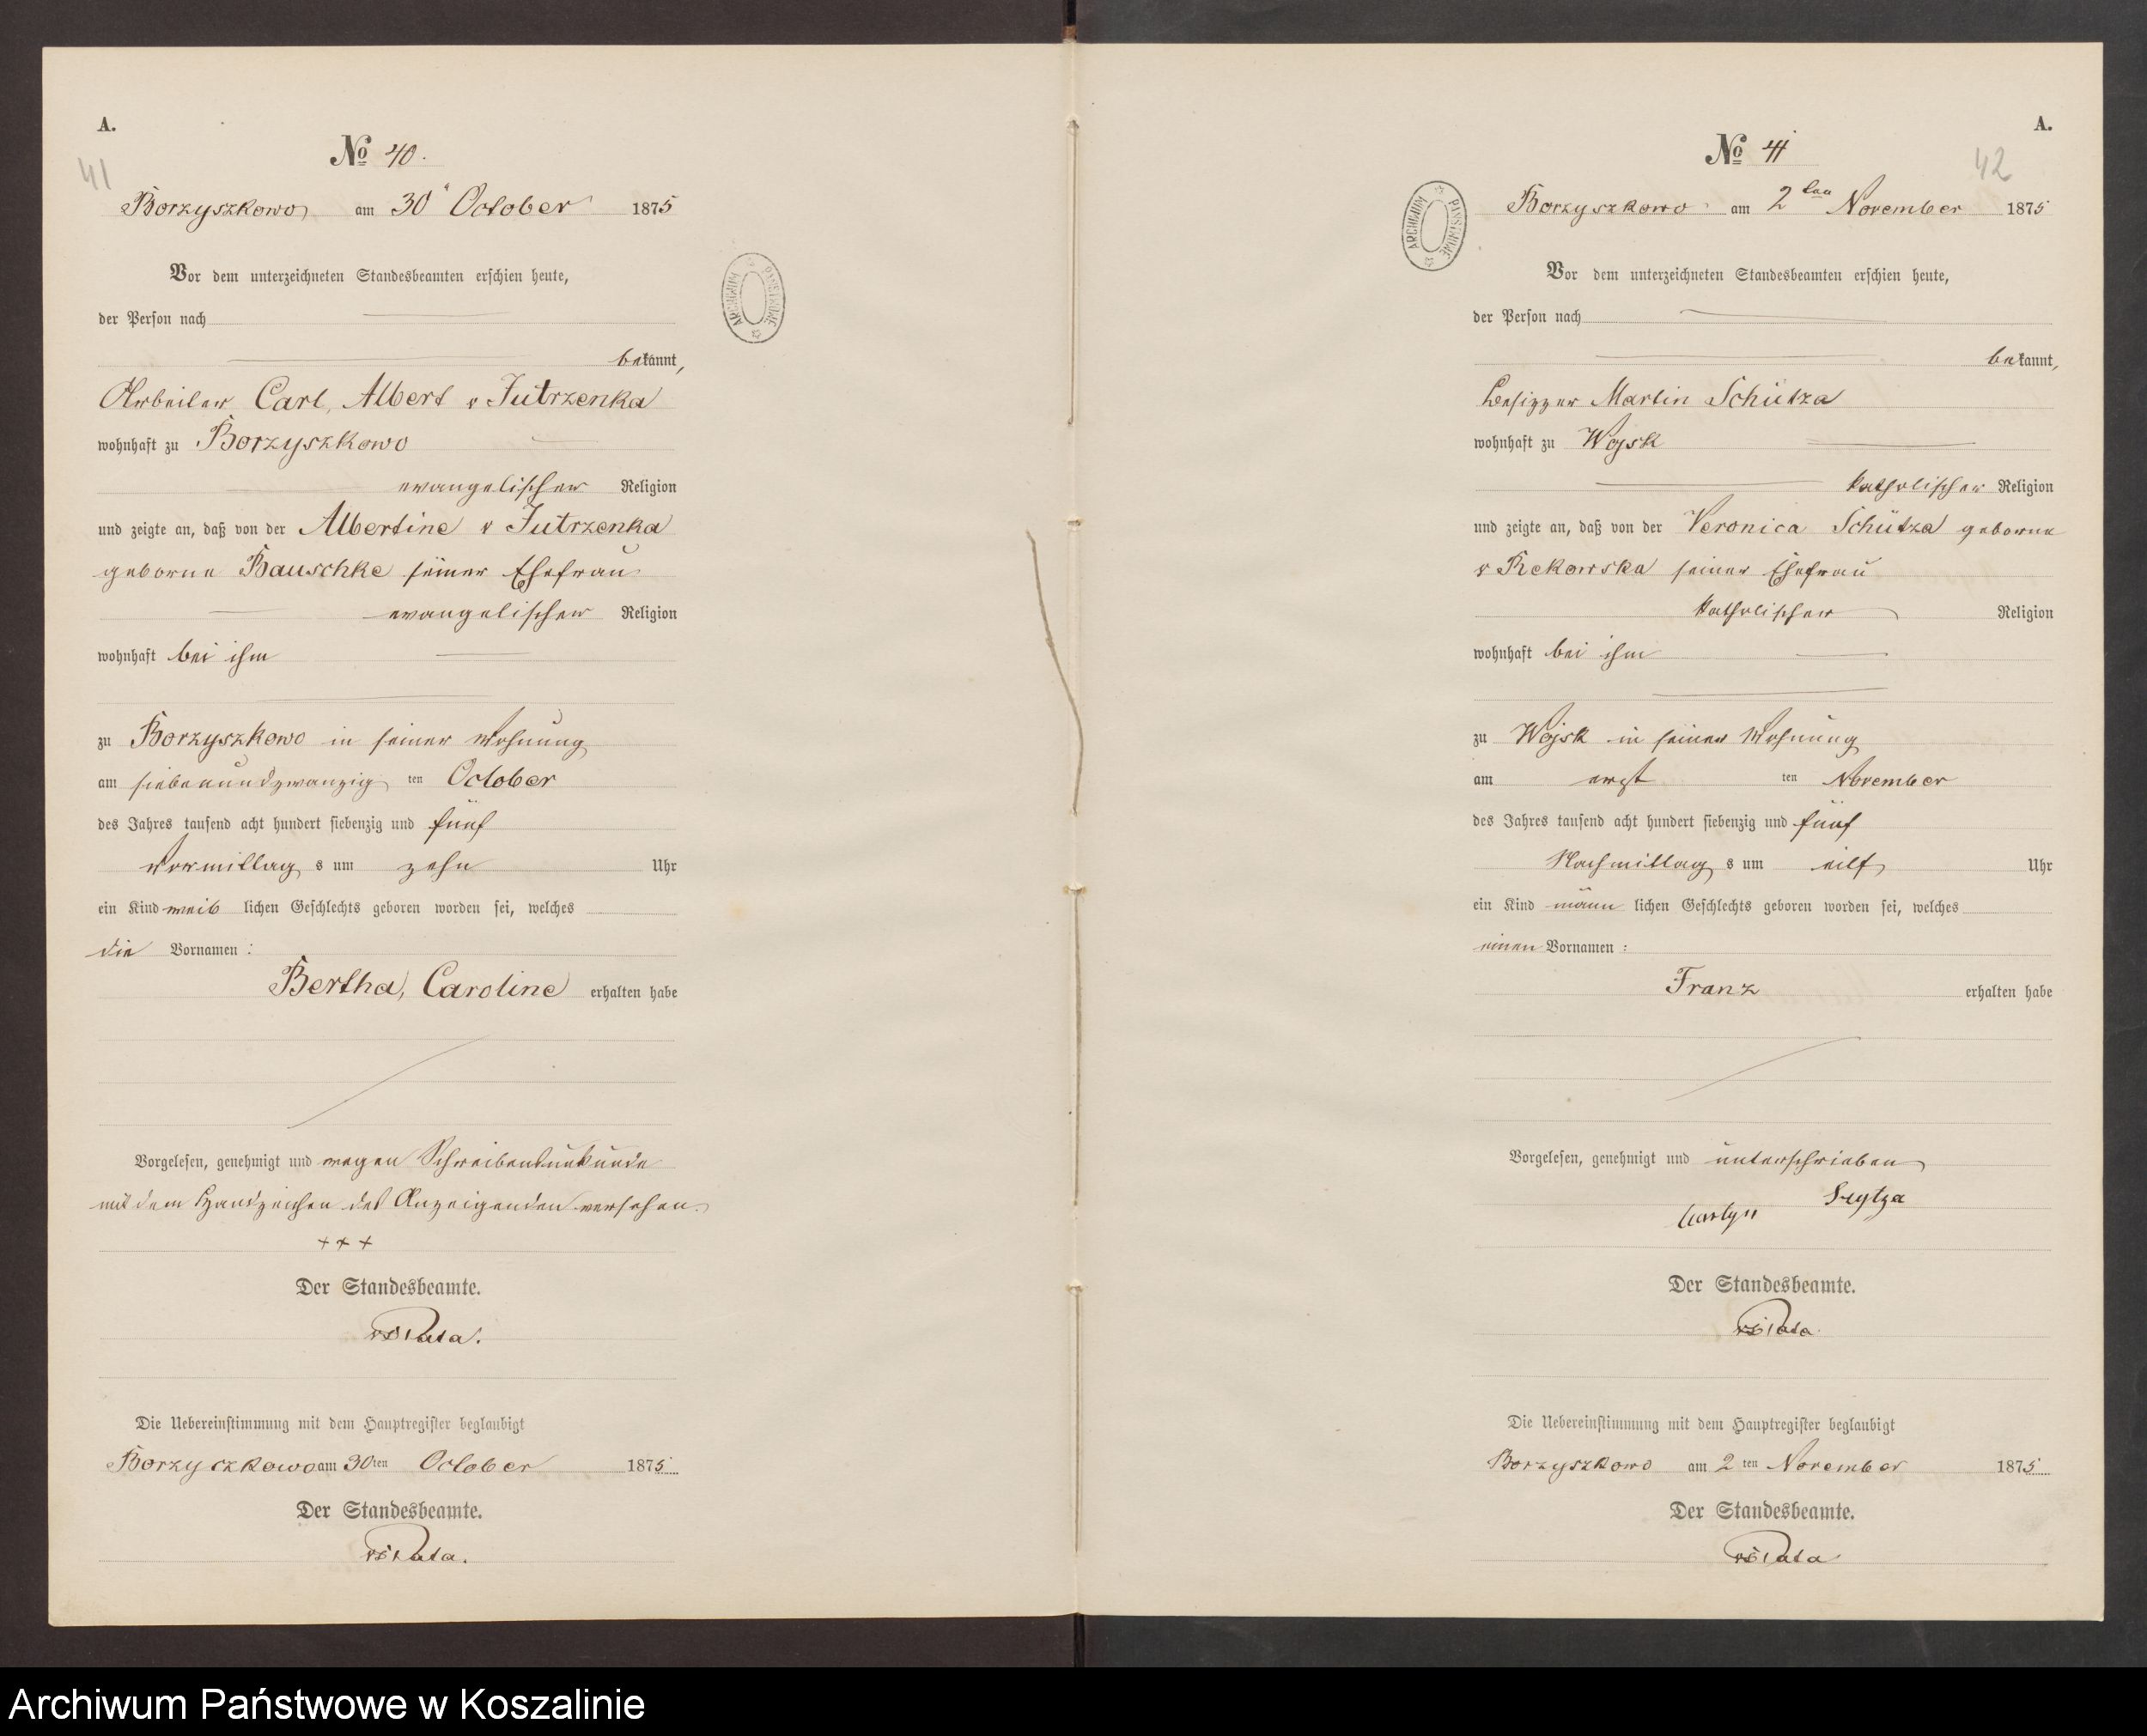 A.
41
№ 40.
Borzyszkowo am 30 October 1875
ARCHIWUM PAŃSTWOWE
Vor dem unterzeichneten Standesbeamten erschien heute,
der Person nach
bekannt,
Arbeiter Carl, Albert v Jutrzenka
wohnhaft zu Borzyszkowo
evangelischer Religion
und zeigte an, daß von der Albertine v Jutrzenka
geborne Bauschke seiner Ehefrau
evangelischer Religion
wohnhaft bei ihm
zu Borzyszkowo in seiner Wohnung
am siebenundzwanzig ten October
des Jahres tausend acht hundert siebenzig und fünf
Vormittag s um zehn Uhr
ein Kind weib lichen Geschlechts geboren worden sei, welches
die Vornamen :
Bertha, Caroline erhalten habe
Vorgelesen, genehmigt und wegen Schreibensunkunde
mit dem Handzeichen des Anzeigenden versehen.
+ + +
Der Standesbeamte.
Die Uebereinstimmung mit dem Hauptregister beglaubigt
Borzyczkowo am 30ten October 1875
Der Standesbeamte.
A.
42
№ 41
Borzyszkowo am 2ten November 1875
ARCHIWUM PAŃSTWOWE
Vor dem unterzeichneten Standesbeamten erschien heute,
der Person nach
bekannt,
Besitzer Martin Schütza
wohnhaft zu Wojsk
katholischer Religion
und zeigte an, daß von der Veronica Schütza geborne
v Rekowska seiner Ehefrau
katholischer Religion
wohnhaft bei ihm
zu Wojsk in seiner Wohnung
am erst ten November
des Jahres tausend acht hundert siebenzig und fünf
Nachmittag s um eilf Uhr
ein Kind männ lichen Geschlechts geboren worden sei, welches
einen Vornamen :
Franz erhalten habe
Vorgelesen, genehmigt und unterschrieben
Der Standesbeamte.
Die Uebereinstimmung mit dem Hauptregister beglaubigt
Borzyszkowo am 2 ten November 1875
Der Standesbeamte.
Archiwum Państwowe w Koszalinie